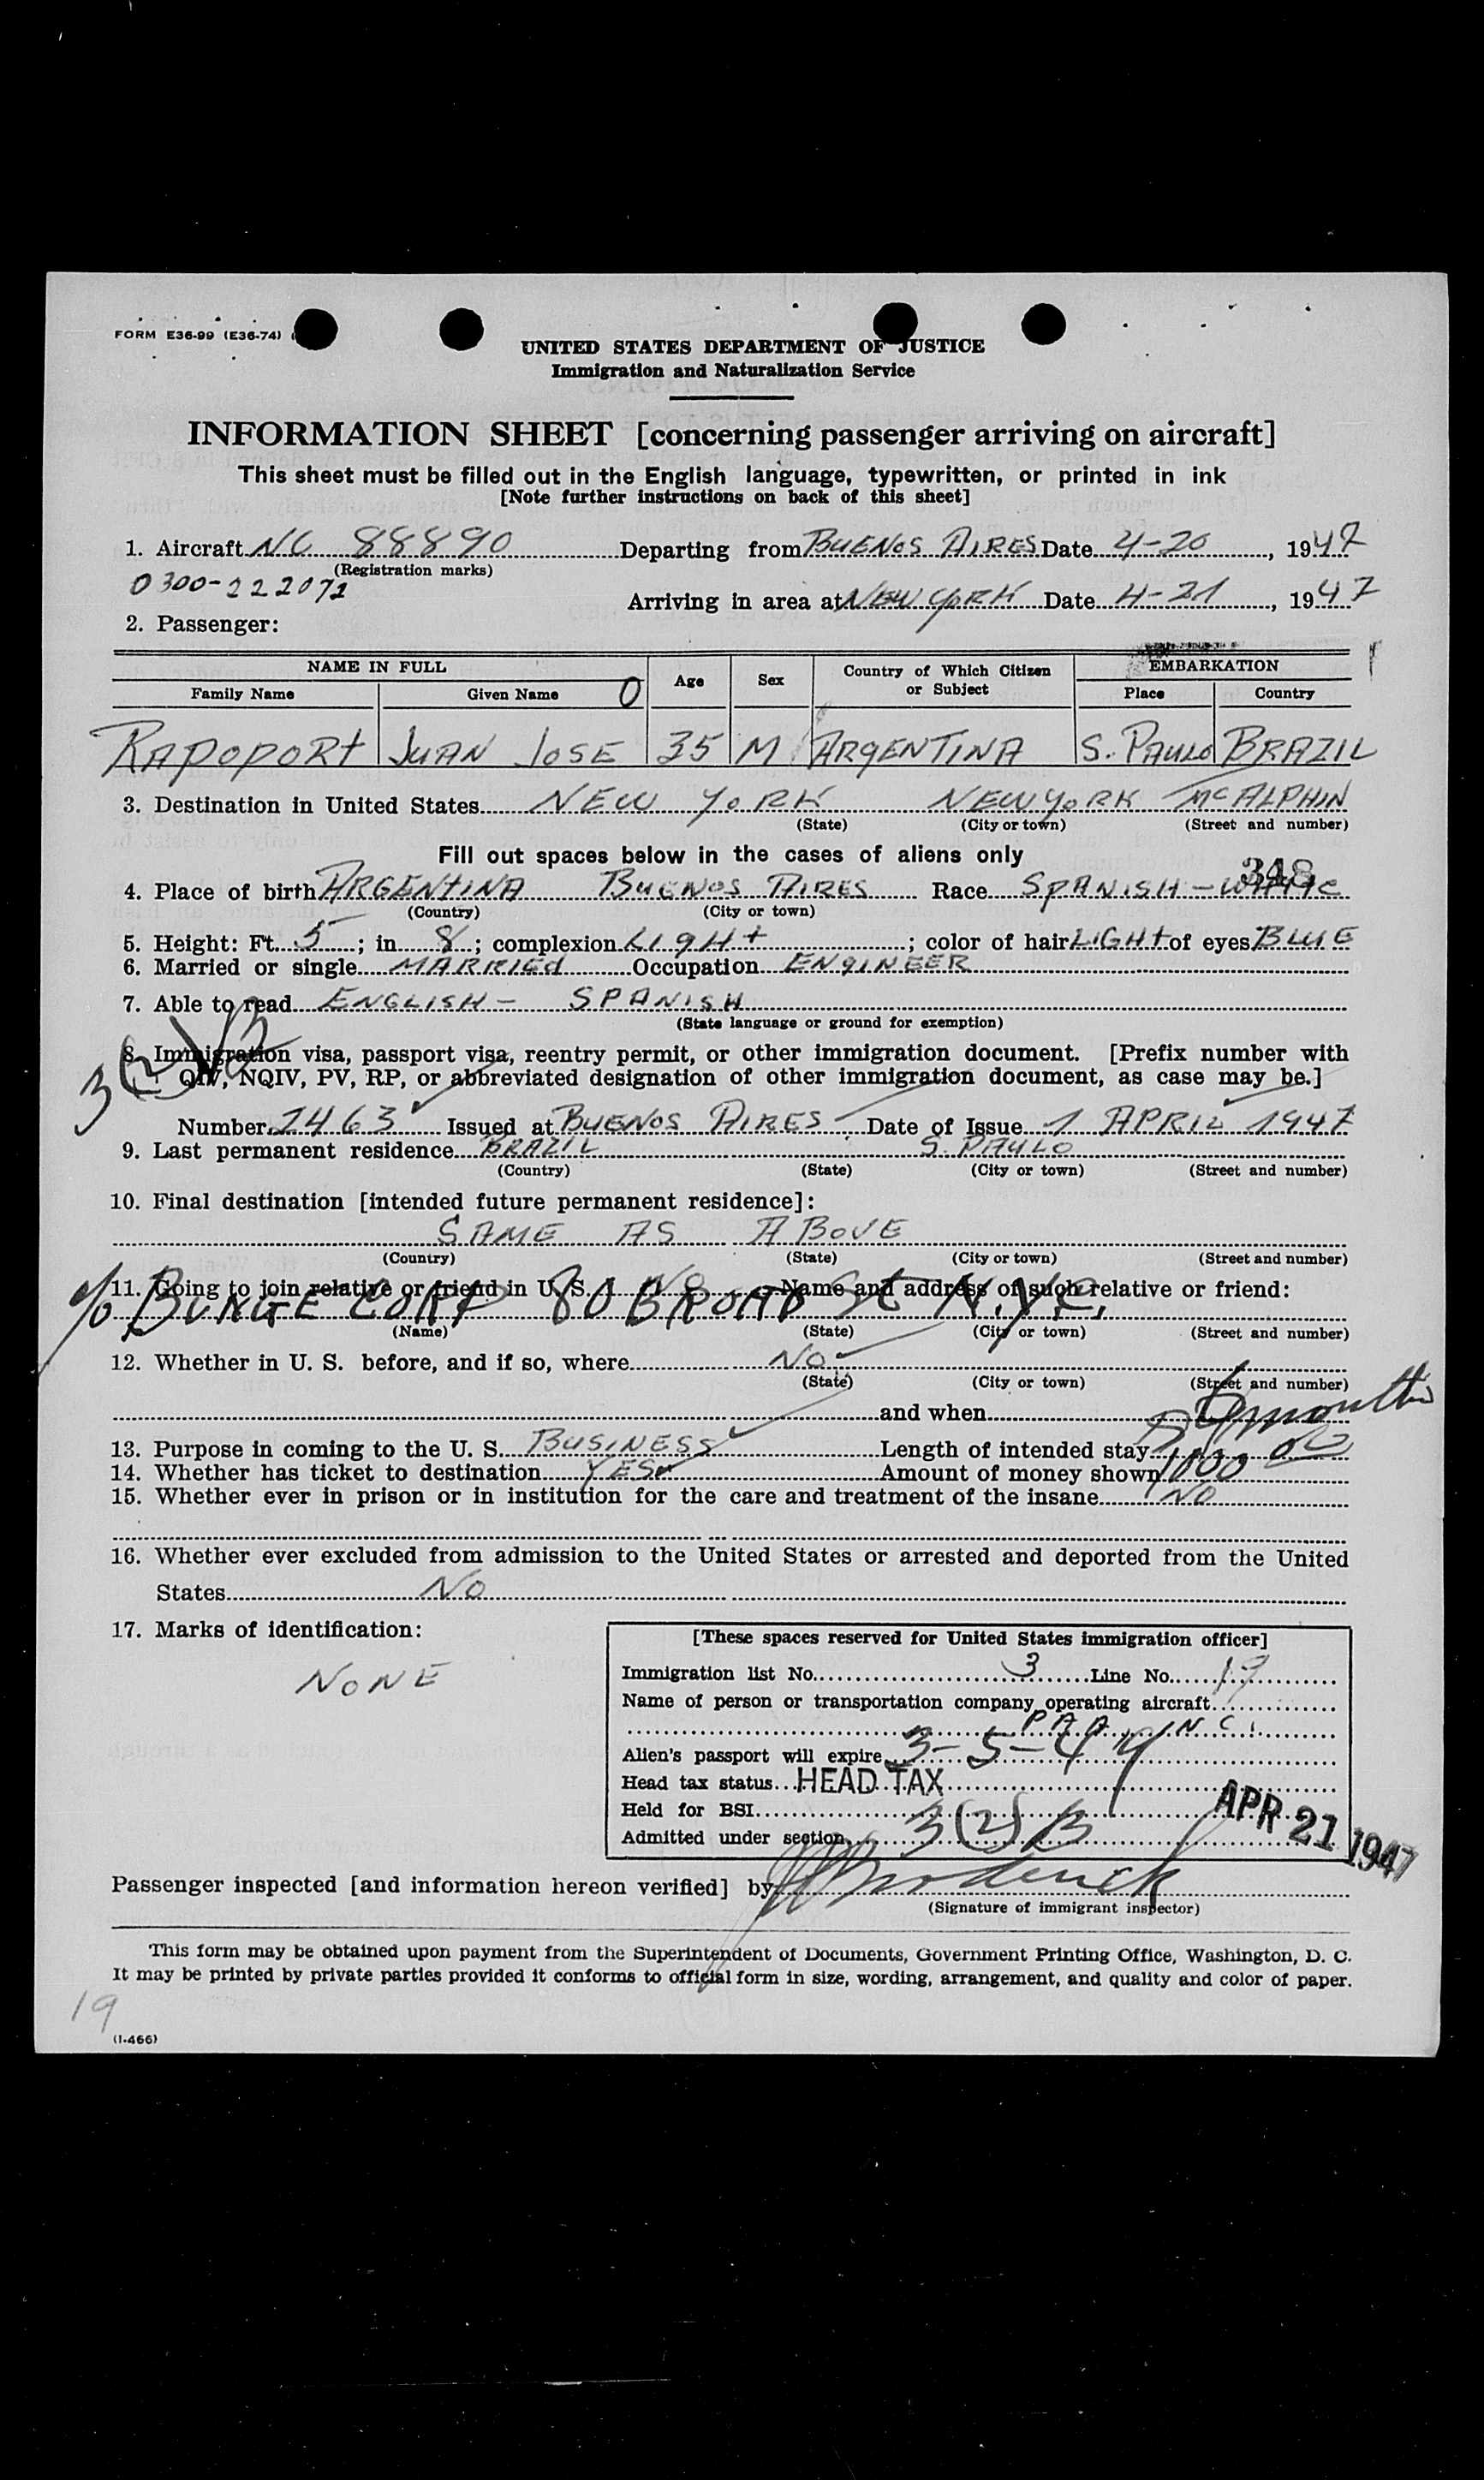 FORM E36-99 (E36-74)
UNITED STATES DEPARTMENT OF JUSTICE
Immigration and Naturalization Service
INFORMATION SHEET [concerning passenger arriving on aircraft]
This sheet must be filled out in the English language, typewritten, or printed in ink
[Note further instructions on back of this sheet]
1. Aircraft NC 88890 Departing from BUENOS AIRES Date 4-20, 1947
(Registration marks)
0300-222072
Arriving in area at NEW YORK Date 4-21, 1947
2. Passenger:
NAME IN FULL Age Sex Country of Which Citizen or Subject EMBARKATION
Family Name Given Name O Place Country
RAPOPORT JUAN JOSE 35 M ARGENTINA S. PAULO BRAZIL
3. Destination in United States NEW YORK NEW YORK MCALPHIN
(State) (City or town) (Street and number)
Fill out spaces below in the cases of aliens only
348
4. Place of birth ARGENTINA BUENOS AIRES Race SPANISH-WHITE
(Country) (City or town)
5. Height: Ft. 5; in 8; complexion LIGHT; color of hair LIGHT of eyes BLUE
6. Married or single MARRIED Occupation ENGINEER
7. Able to read ENGLISH - SPANISH
(State language or ground for exemption)
3(2)VB
8. Immigration visa, passport visa, reentry permit, or other immigration document. [Prefix number with
QIV, NQIV, PV, RP, or abbreviated designation of other immigration document, as case may be.]
Number 2463 Issued at BUENOS AIRES Date of Issue 1 APRIL 1947
9. Last permanent residence BRAZIL S. PAULO
(Country) (State) (City or town) (Street and number)
10. Final destination [intended future permanent residence]:
SAME AS ABOVE
(Country) (State) (City or town) (Street and number)
11. Going to join relative or friend in U. S. No Name and address of such relative or friend:
c/o BUNGE CORP 80 BROAD St N.Y.C.
(Name) (State) (City or town) (Street and number)
12. Whether in U. S. before, and if so, where NO
(State) (City or town) (Street and number)
and when
13. Purpose in coming to the U. S. BUSINESS Length of intended stay 6 months
14. Whether has ticket to destination YES Amount of money shown 1000 00
15. Whether ever in prison or in institution for the care and treatment of the insane NO
16. Whether ever excluded from admission to the United States or arrested and deported from the United
States NO
17. Marks of identification:
NONE
[These spaces reserved for United States immigration officer]
Immigration list No. 3 Line No. 19
Name of person or transportation company operating aircraft
PAA INC.
Alien's passport will expire 3-5-49
Head tax status HEAD TAX
Held for BSI
Admitted under section 3(2)B
APR 21 1947
Passenger inspected [and information hereon verified] by Broderick
(Signature of immigrant inspector)
This form may be obtained upon payment from the Superintendent of Documents, Government Printing Office, Washington, D. C.
It may be printed by private parties provided it conforms to official form in size, wording, arrangement, and quality and color of paper.
19
(I-466)